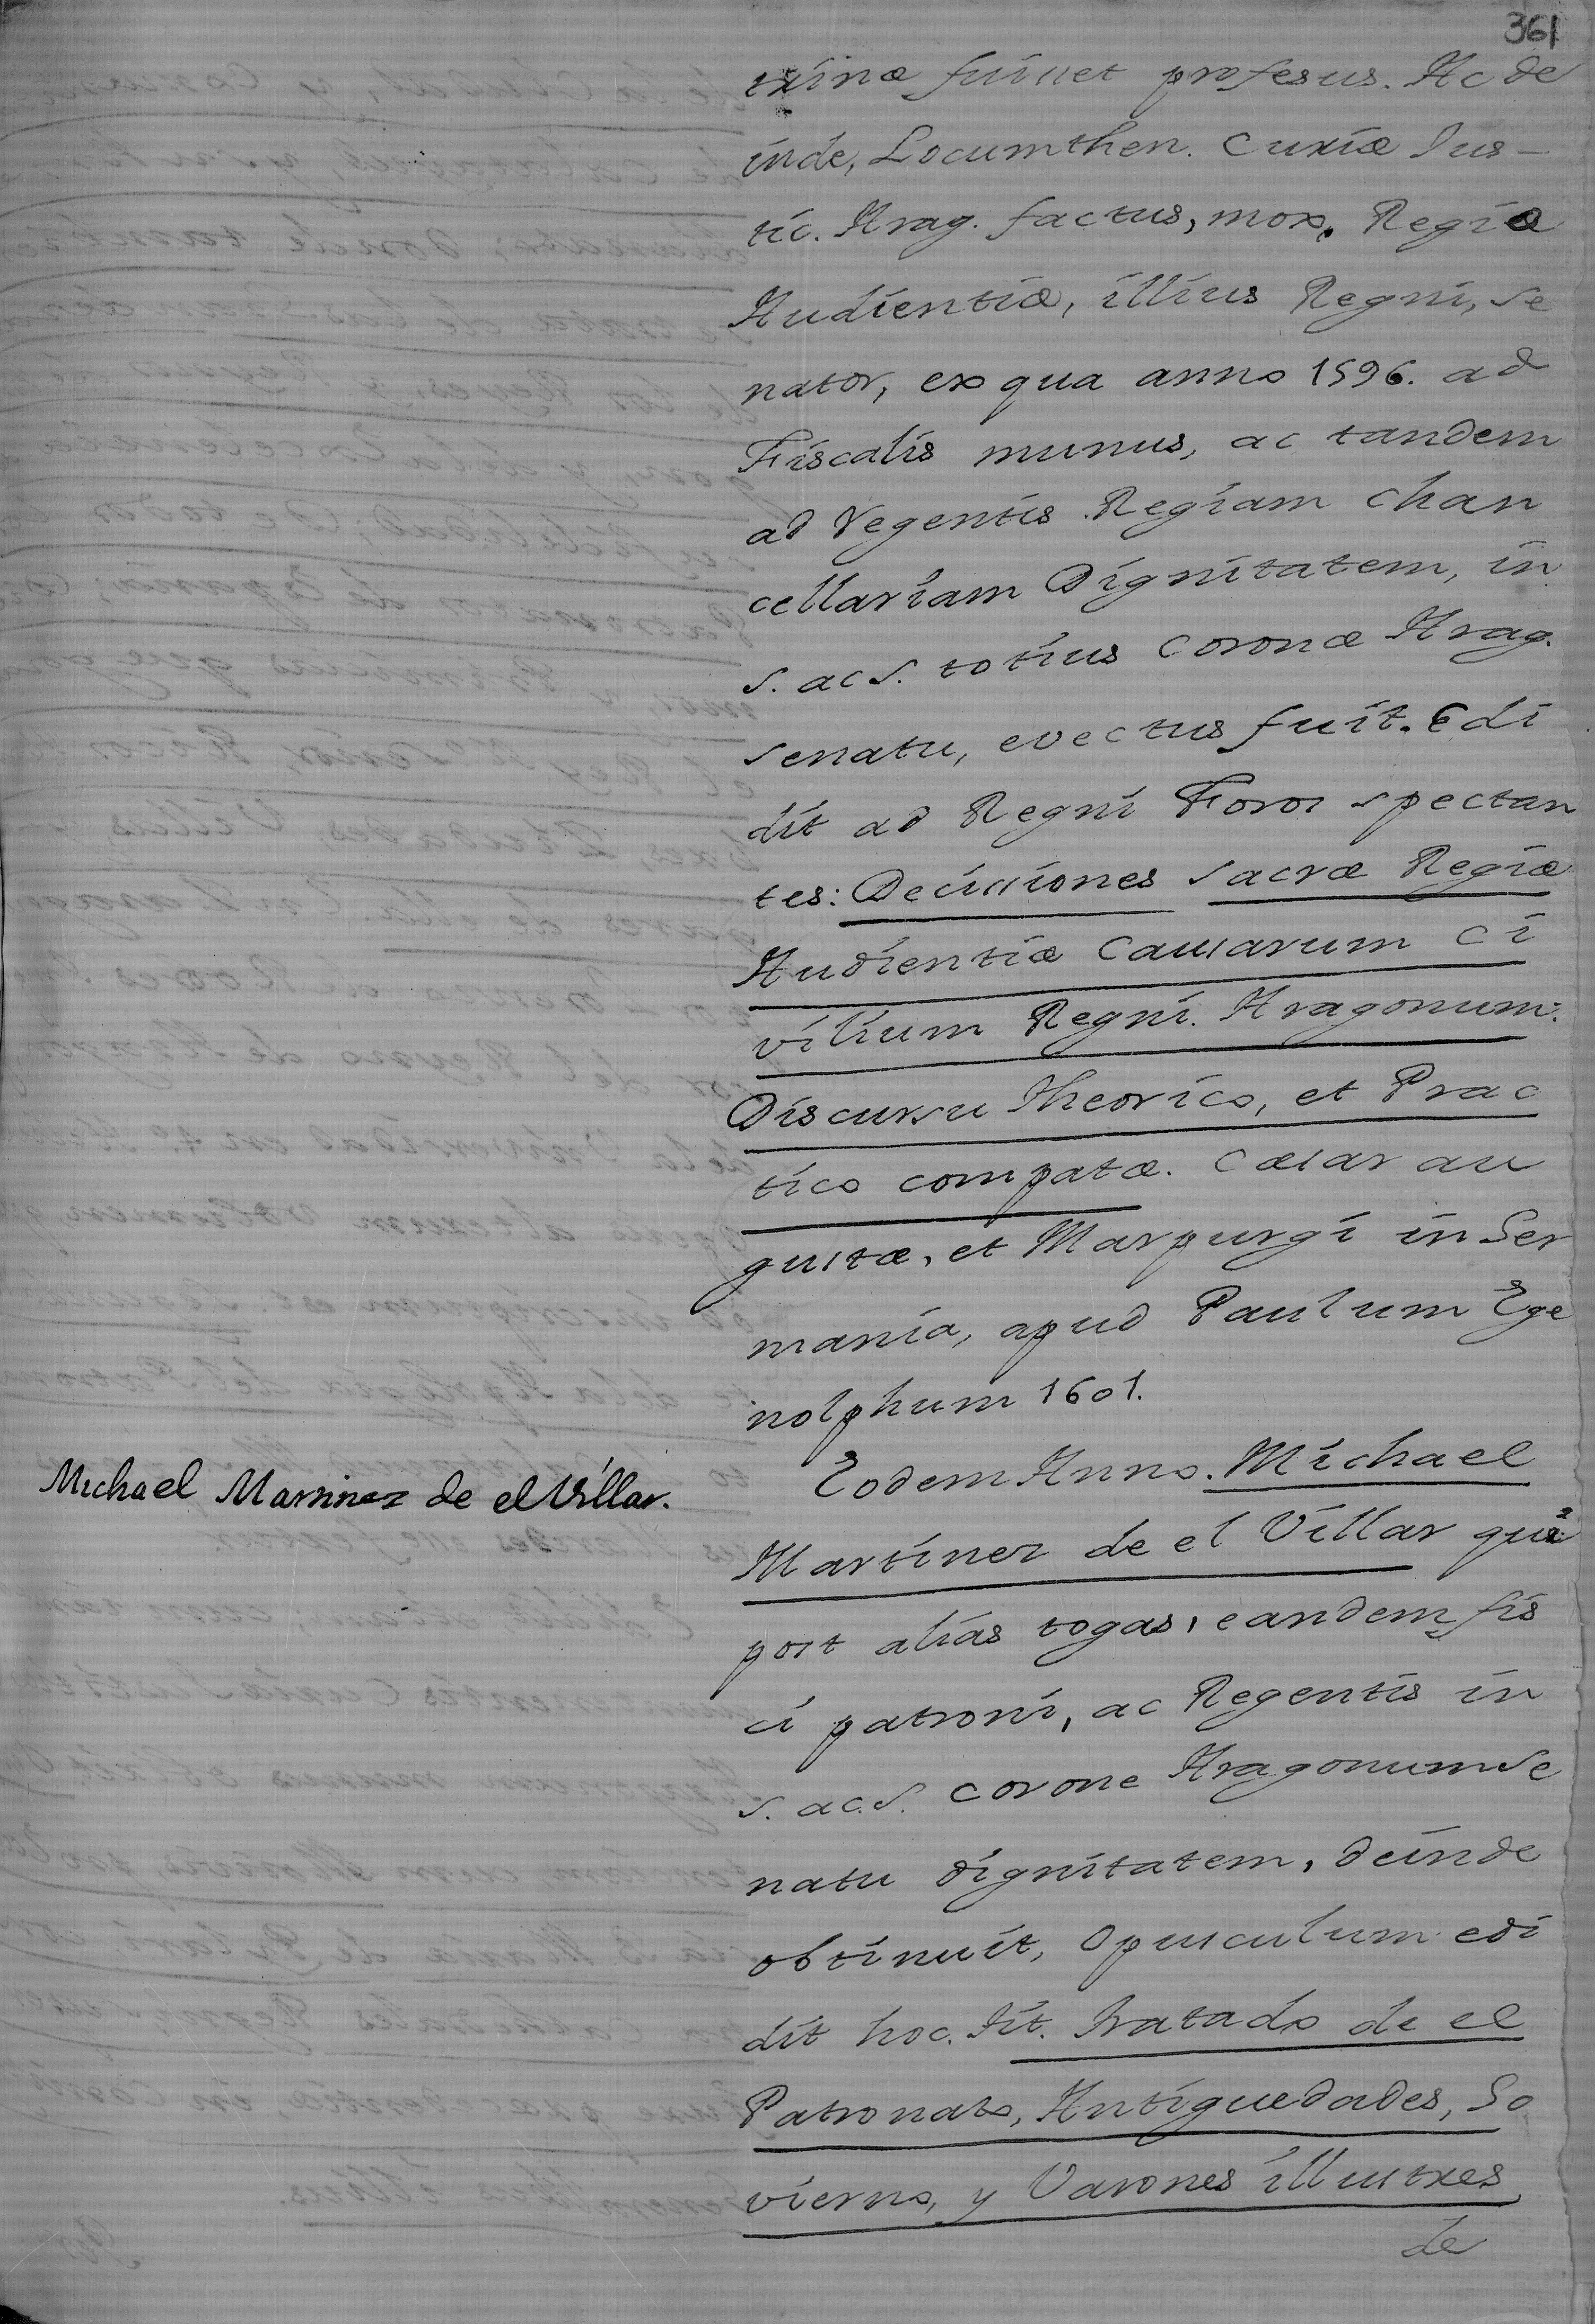 361
trinæ fuisset profesus. Ac de
inde, Locumthen. Curiæ Jus-
tic. Arag. factus, mox, Regiæ
Audientiæ, illius Regni, se
nator, ex qua anno 1596. ad
Fiscalis munus, ac tandem
ad Regentis Regiam Chan
cellariam Dignitatem, in
s. ac s. totius Coronæ Arag.
senatu, evectus fuit. Edi
dit ad Regni Foros spectan
tes: Decissiones sacræ Regiæ
Audientiæ Causarum Ci
vilium Regni. Aragonum.
Discursu Theorico, et Prac
tico compatæ. Cæsar au
gustæ, et Marpurgi in Ger
mania, apud Paulum Ege
nolphum 1601.
Michael Martinez de el Villar.
Eodem Anno. Michael
Martinez de el Villar qui
post alias togas, eandem fis
ci patroni, ac Regentis in
s. ac. s. corone Aragonum se
natu dignitatem, deinde
obtinuit, Opusculum edi
dit hoc. Tit. Tratado de el
Patronato, Antiguedades, Go
vierno, y Varones illustres
de